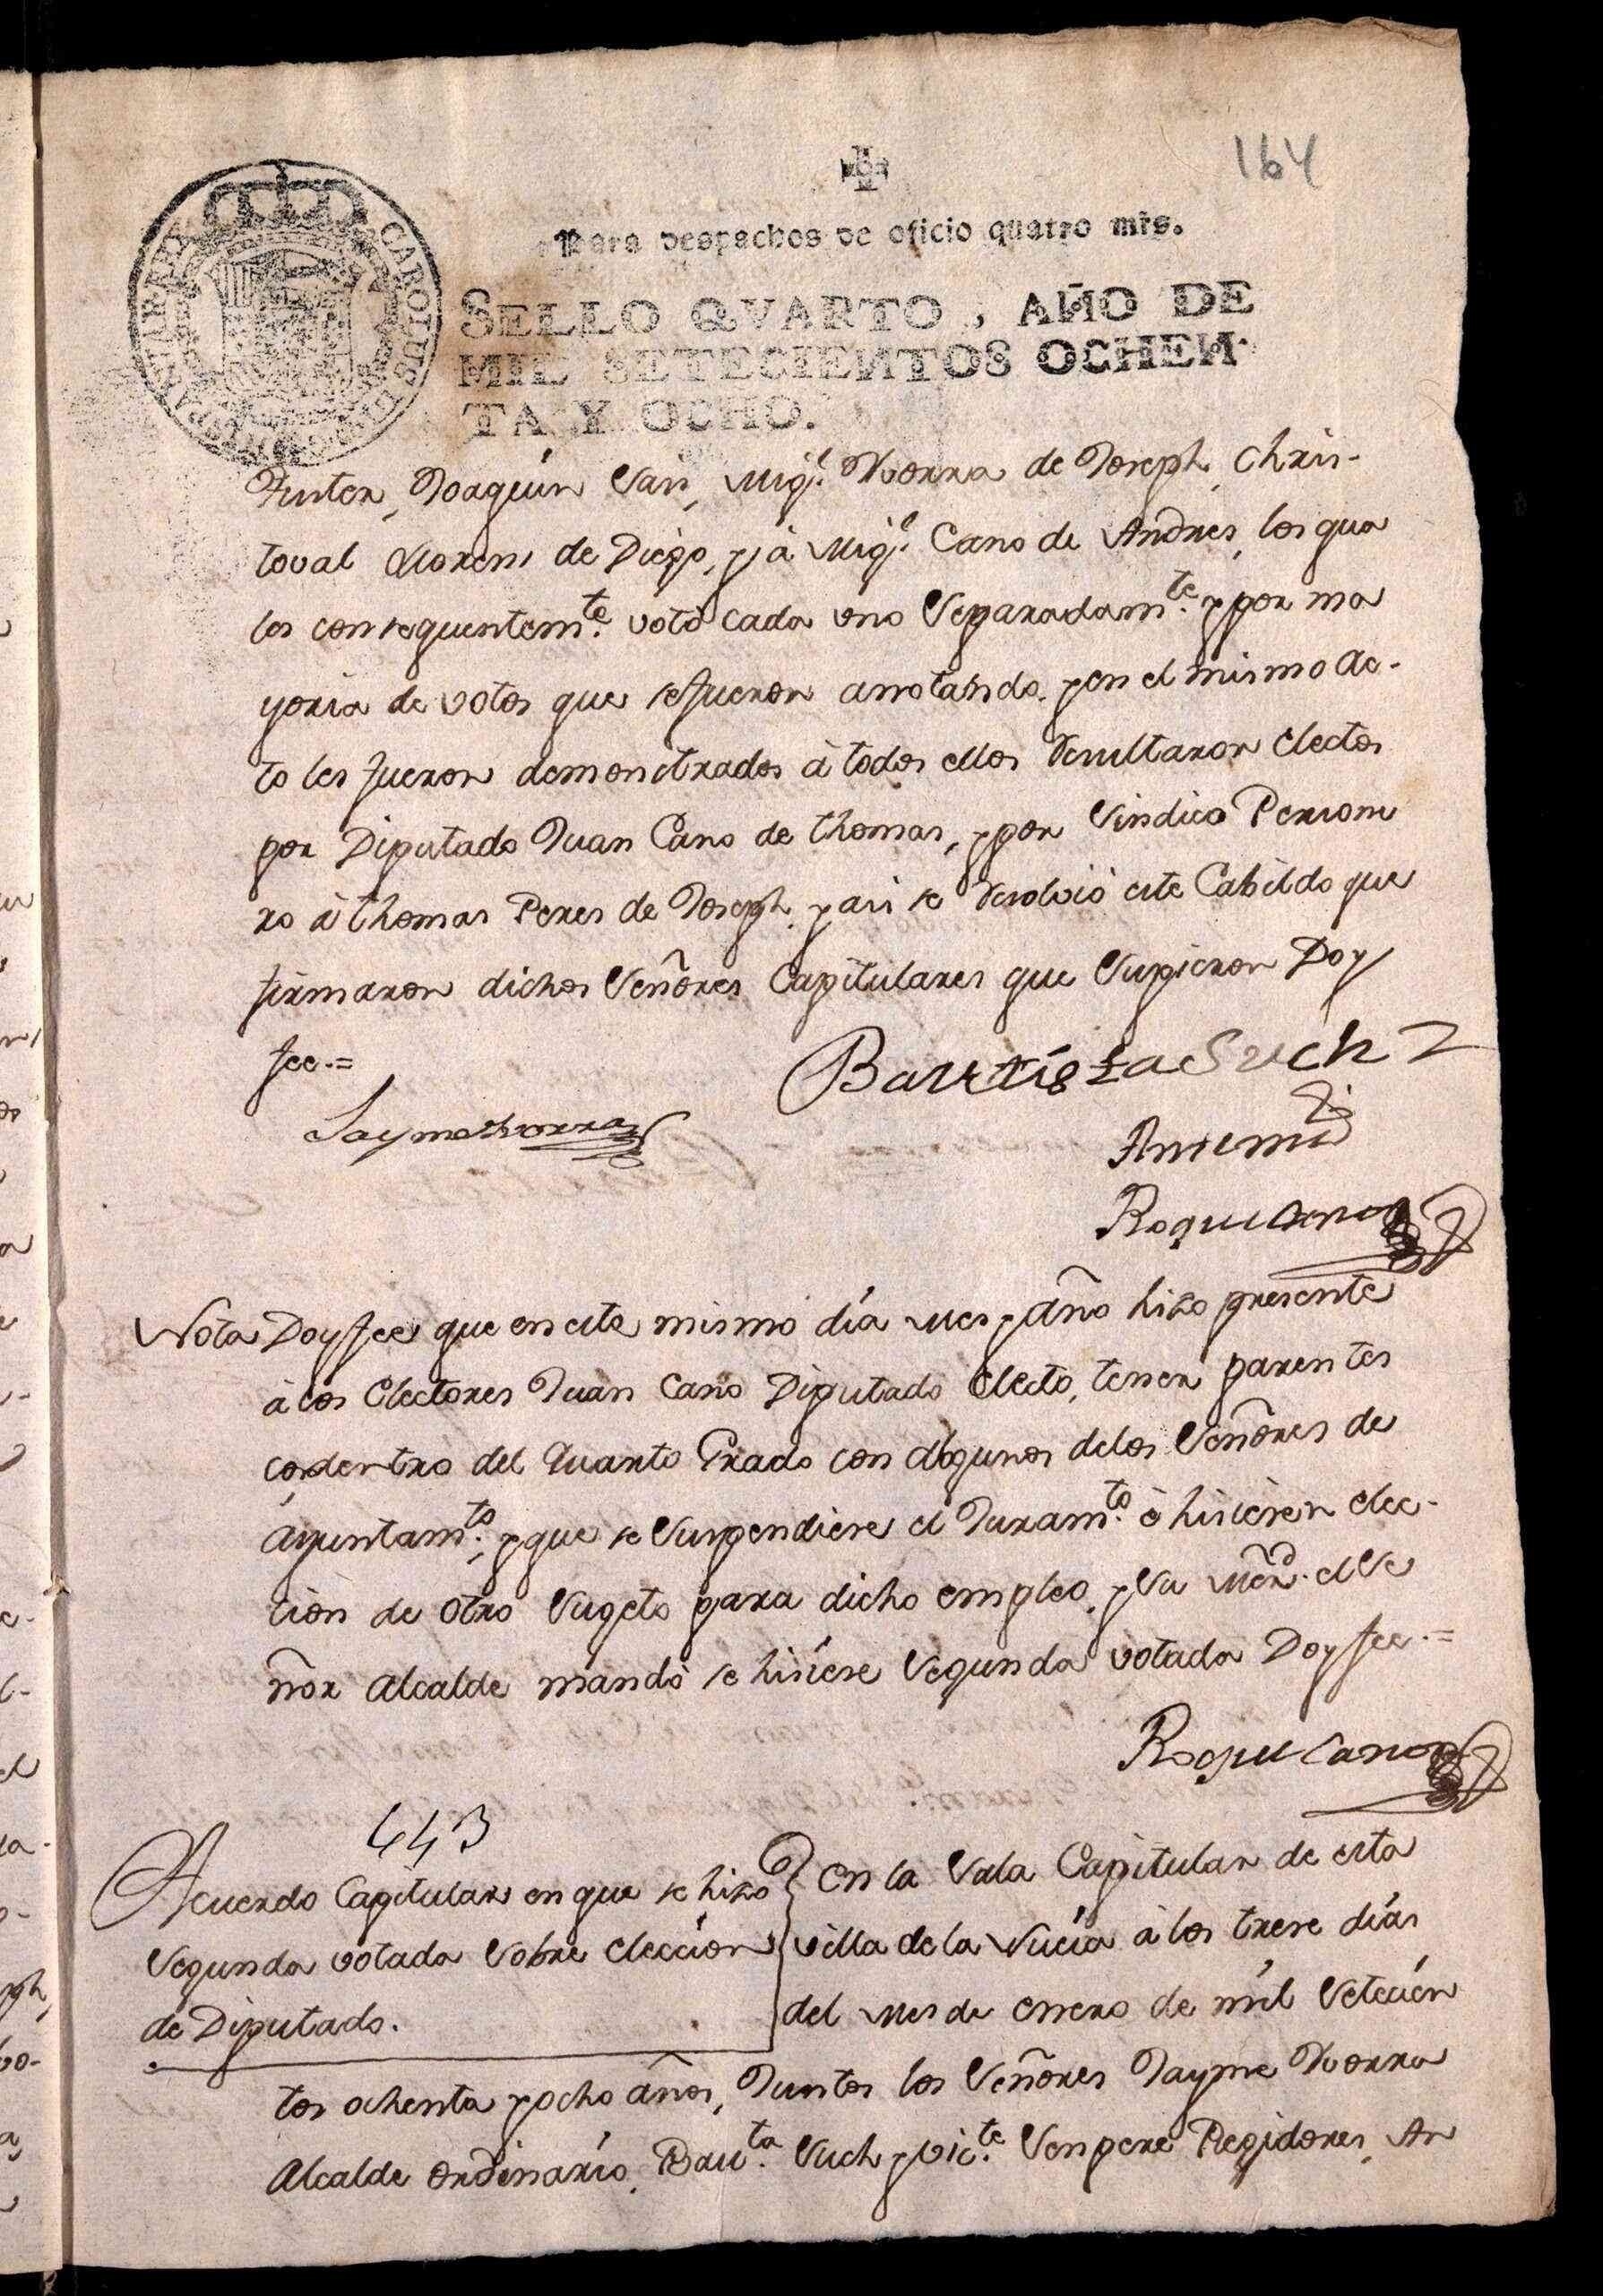 164
Para despachos de oficio quatro mrs.
SELLO QVARTO, AÑO DE
MIL SETECIENTOS OCHEN-
TA Y OCHO.
CAROLUS
Fuster, Joaquin Sais, Migl. Llorca de Joseph, Chris-
toval Llorens de Diego, y à Migl. Cano de Andres, los qua
les consequentemte. votò cada uno Separadamte. y por ma
yoria de votos que se fueron annotando, y en el mismo ac-
to les fueron demonstrados à todos ellos Resultaron Electos
por Diputado Juan Cano de Thomas, y por Sindico Persone
ro à Thomas Peres de Joseph, y asi se Resolviò este Cabildo que
firmaron dichos Señores Capitulares que Supieron Doy
fee.=
Bautista Such
Jayme Llorca
Ante mi
Roque Cano
Nota Doy fee que en este mismo día mes y año hizo presente
à los Electores Juan Cano Diputado Electo, tener parentes
co dentro del Quarto Grado con algunos de los Señores de
Ayuntamto., y que se Suspendiere el Juramto. è hicieren elec-
ciòn de otro Sugeto para dicho empleo, y Su Merd. el Se
ñor Alcalde mandò se hiciere Segunda votada Doy fee.=
Roque Cano
443
Acuerdo Capitular en que se hizo
Segunda votada Sobre elección
de Diputado.
En la Sala Capitular de esta
villa de la Nucía à los trese días
del mes de enero de mil Setecien
tos ochenta y ocho años, Juntos los Señores Jayme Llorca
Alcalde ordinario, Bauta. Such y Victe. Sempere Regidores, An